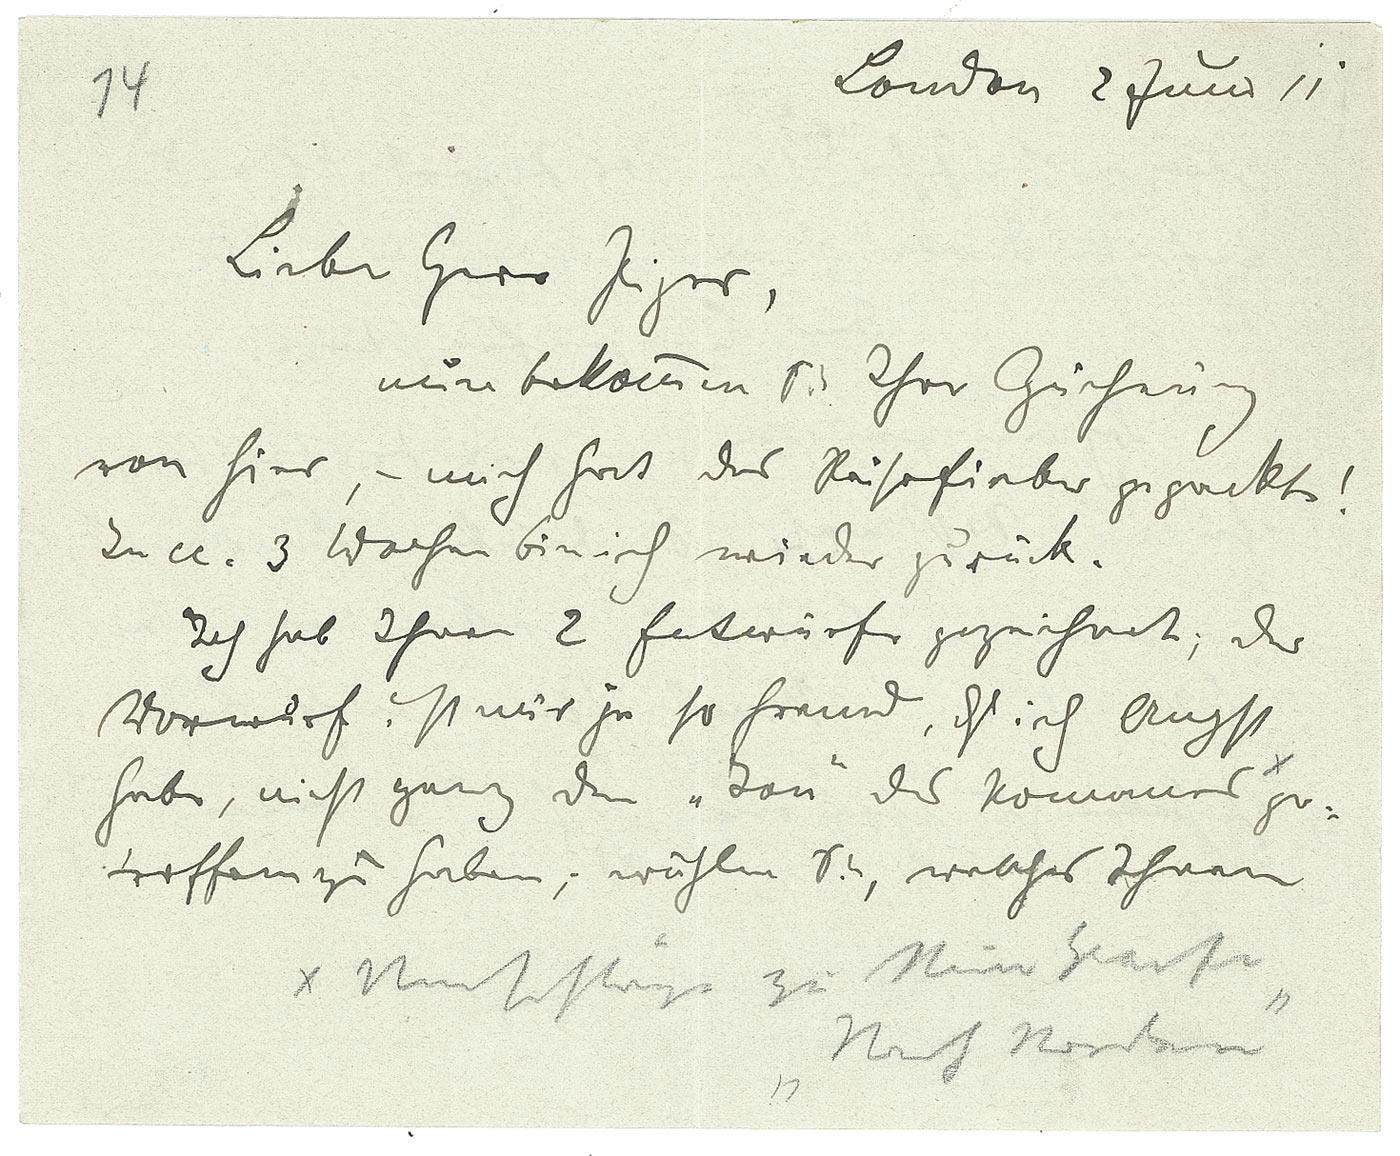 14
London 2 Juni 11
Lieber Herr Piper,
nun bekommen Sie Ihre Zeichnung
von hier, – mich hat das Reisefieber gepackt!
In cc. 3 Wochen bin ich wieder zurück.
Ich hab Ihnen 2 Entwürfe gezeichnet; der
Vorwurf ist mir ja so fremd, dß ich Angst
habe, nicht ganz den „Ton“ des Romanes x ge-
troffen zu haben; wählen Sie, welches Ihnen
x zu
„Nach Norden“